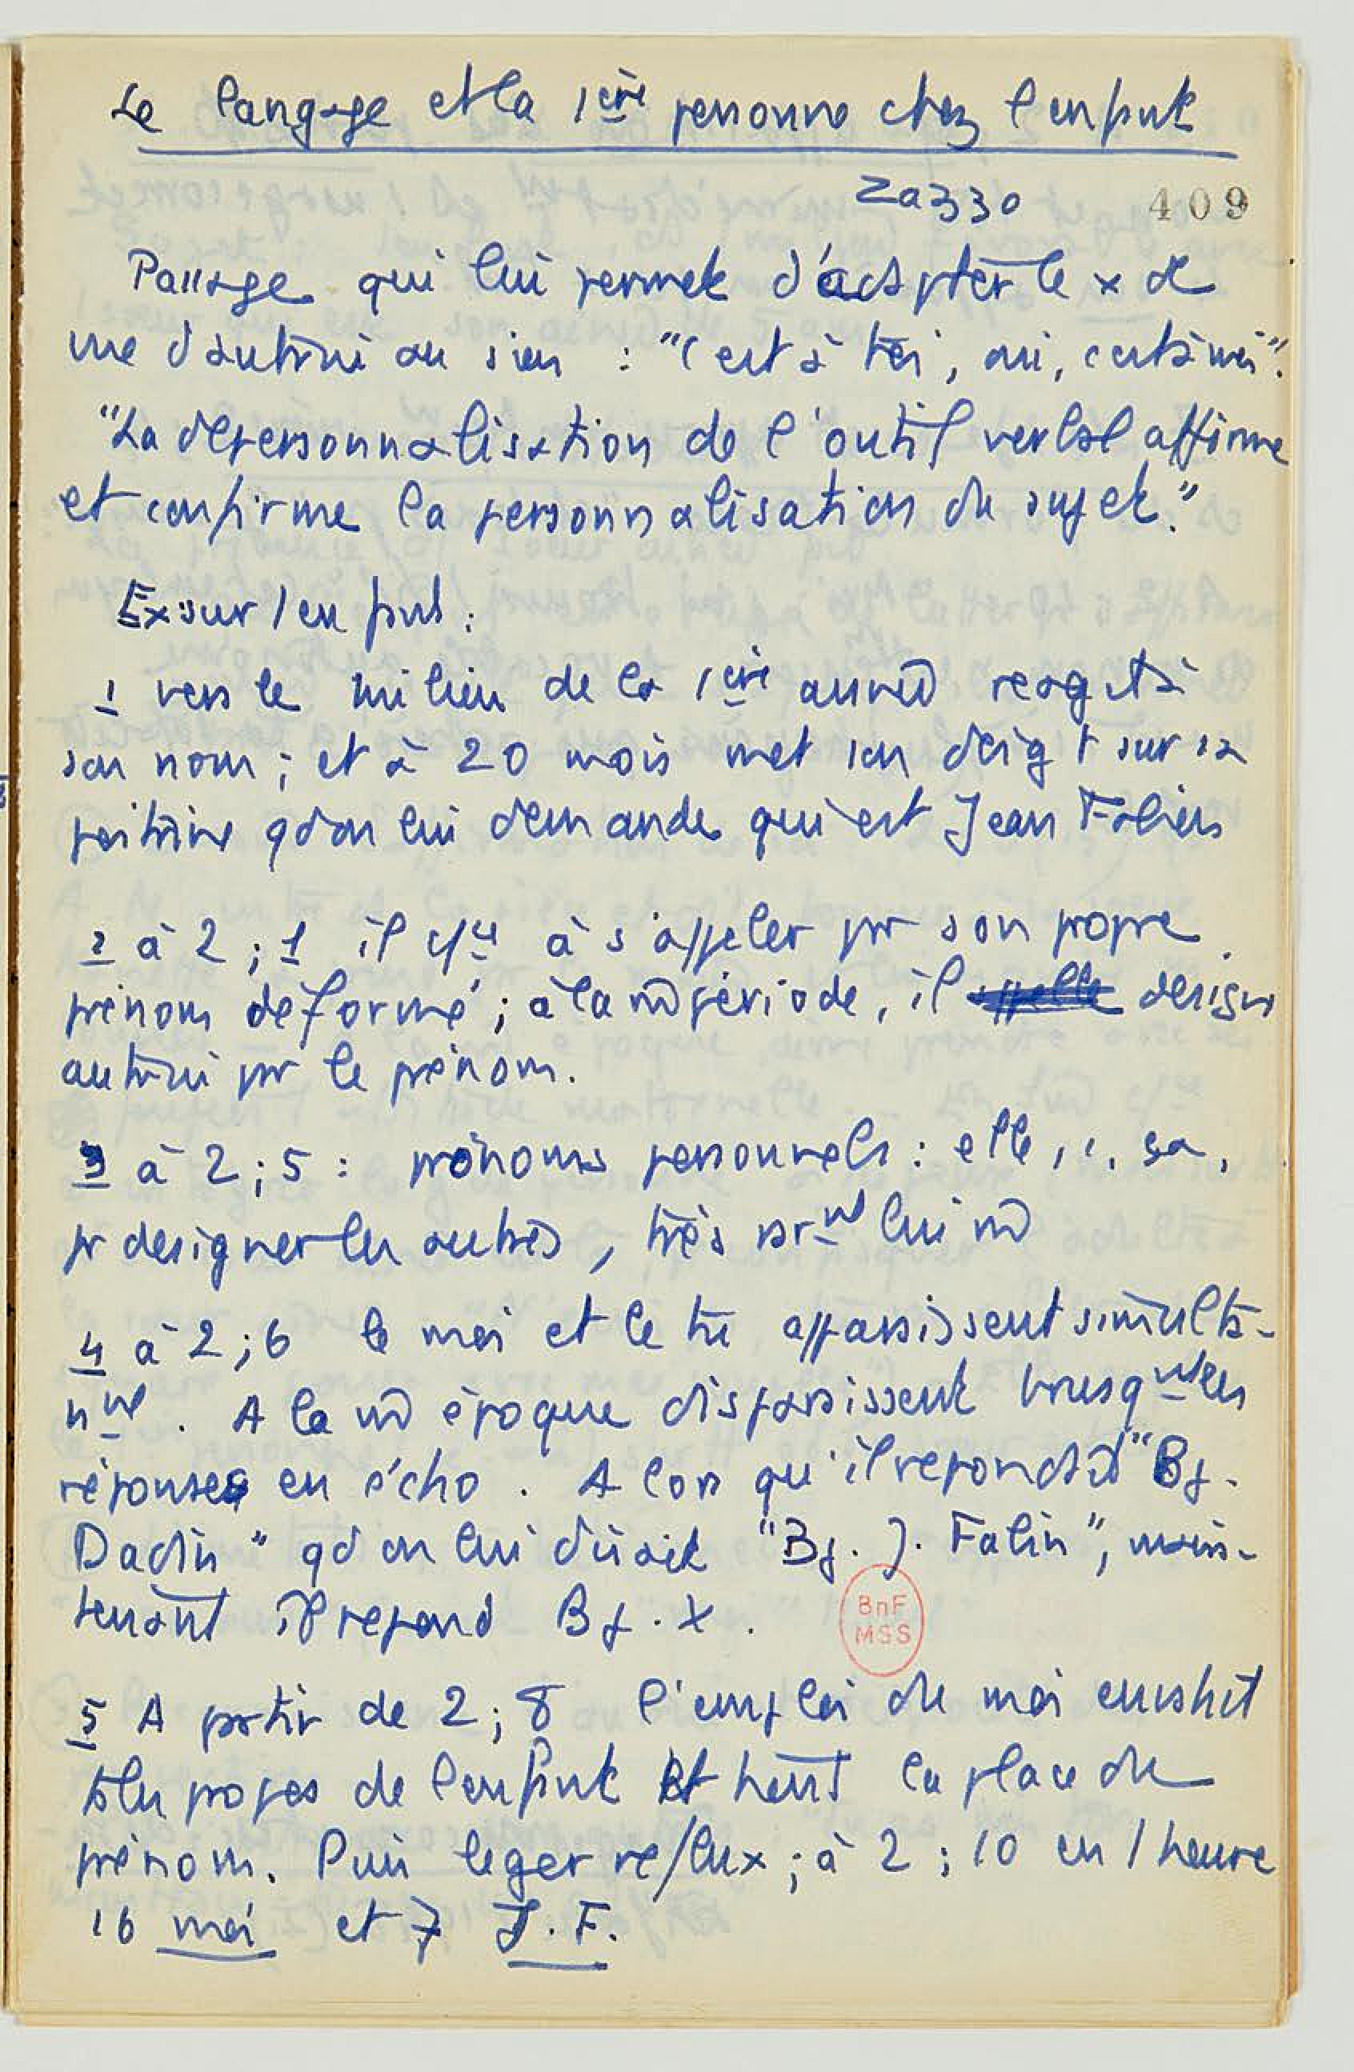 Le langage et la 1ère personne chez l'enfant
Za330 409
Passage qui lui permet d'adapter le x de
me d'autrui au sien : "c'est à toi, oui, c'est à moi".
"La depersonnalisation de l'outil verbal affirme
et confirme la personnalisation du sujet."
Ex sur 1 enfant :
1 vers le milieu de la 1ère année reagit à
son nom ; et à 20 mois met son doigt sur sa
poitrine qd on lui demande qui est Jean Fabien
2 à 2 ; 1 il à s'appeler pr son propre
prénom déformé ; à la m̄ période, il désigne
autrui pr le prénom.
3 à 2 ; 5 : pronoms personnels : elle, i, sa,
pr designer les autres, très rrt lui m̄
4 à 2 ; 6 le moi et le tu apparaissent simulta-
nmt. A la m̄ époque disparaissent brusqmt les
réponses en écho. Alors qu'il repondait "Bj.
Dadin" qd on lui disait "Bj. J. Falin", main-
tenant il repond Bj. X.
BnF
MSS
5 A partir de 2 ; 8 l'emploi du moi envahit
ts les propos de l'enfant et tient la place du
prénom. Puis leger reflux ; à 2 ; 10 en 1 heure
16 moi et 7 J. F.